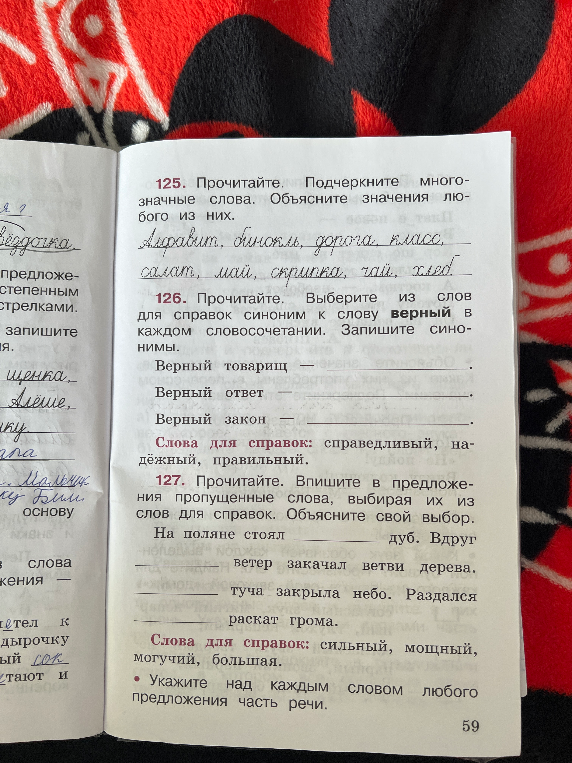 я г
звёздочка,
предложе-
степенным
стрелками.
запишите
я.
щенка,
Алёше,
ку
ала
. Мальчик
ку Бим.
основу
слова
жения —
тел к
дырочку
ый сок
тают и
125. Прочитайте. Подчеркните много-
значные слова. Объясните значения лю-
бого из них.
Алфавит, бинокль, дорога, класс,
салат, май, скрипка, чай, хлеб.
126. Прочитайте. Выберите из слов
для справок синоним к слову верный в
каждом словосочетании. Запишите сино-
нимы.
Верный товарищ — .
Верный ответ — .
Верный закон — .
Слова для справок: справедливый, на-
дёжный, правильный.
127. Прочитайте. Впишите в предложе-
ния пропущенные слова, выбирая их из
слов для справок. Объясните свой выбор.
На поляне стоял дуб. Вдруг
ветер закачал ветви дерева.
туча закрыла небо. Раздался
раскат грома.
Слова для справок: сильный, мощный,
могучий, большая.
• Укажите над каждым словом любого
предложения часть речи.
59